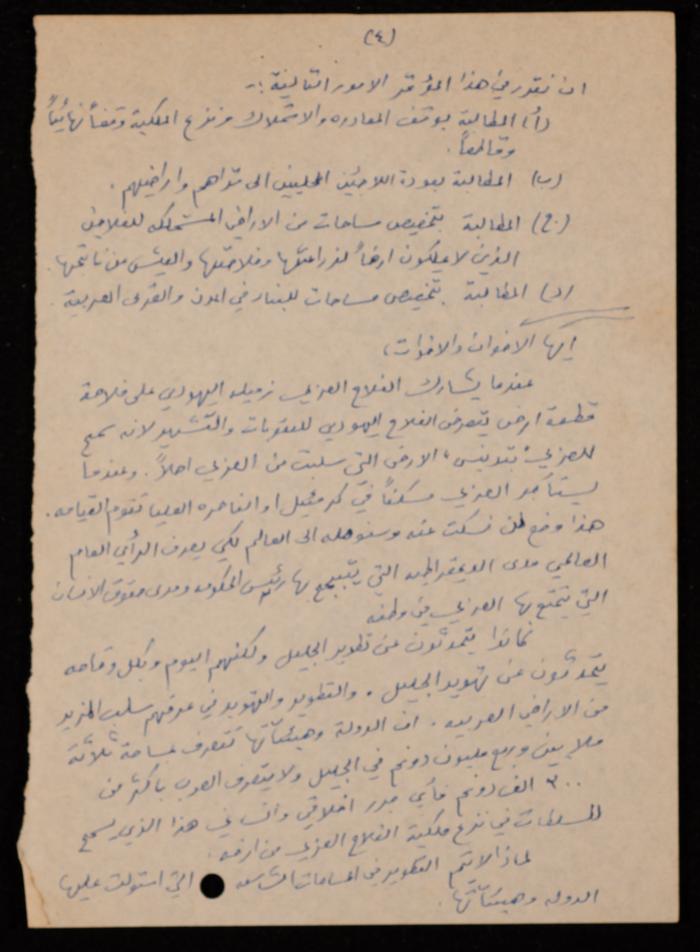 (٤)
ان نقرر في هذا المؤتمر الامور التالية :-
(أ) المطالبة بوقف المصادره والاستملاك ونزع الملكية وقفاً نهائياً
وقاطعاً.
(ب) المطالبة بعودة اللاجئين المحليين الى قراهم واراضيهم.
(ج) المطالبة بتخصيص مساحات من الاراضي المستملكه للفلاحين
الذين لا يملكون ارضاً لزراعتها وفلاحتها والعيش من ناتجها.
(د) المطالبة بتخصيص مساحات للبناء في المدن والقرى العربية
ايها الاخوان والاخوات،
عندما يشارك الفلاح العربي زميله اليهودي على فلاحة
قطعة ارض يتعرض الفلاح اليهودي للعقوبات والتشهير لانه سمح
للعربي "بتدنيس" الارض التي سلبت من العربي اصلاً. وعندما
يستأجر العربي مسكناً في كرمئيل او الناصره العليا تقوم القيامه.
هذا وضع لن نسكت عنه وسنوصله الى العالم لكي يعرف الرأي العام
العالمي مدى الديمقراطيه التي يتبجح بها رئيس الحكومه ومدى حقوق الانسان
التي يتمتع بها العربي في وطنه
كانوا يتحدثون عن تطوير الجليل ولكنهم اليوم وبكل وقاحه
يتحدثون عن تهويد الجليل. والتطوير والتهويد في عرفهم سلب المزيد
من الاراضي العربيه. ان الدولة وهيئاتها تتصرف بمساحة ثلاثة
ملايين وربع مليون دونم في الجليل ولا يتصرف العرب باكثر من
٣٠٠ الف دونم فأي مبرر اخلاقي وانساني هذا الذي يسمح
للسلطات في نزع ملكية الفلاح العربي من ارضه.
لماذا لا يتم التطوير في المساحات الشاسعه التي استولت عليها
الدوله وهيئاتها.